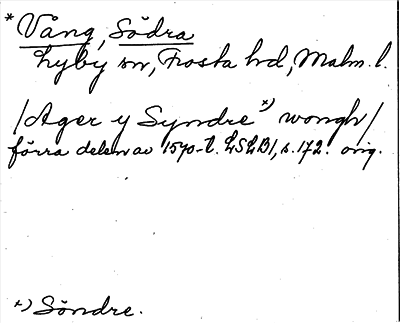 * Vång, Södra
Lyby sn, Frosta hd, Malm. l.
/Ager y Syndre *) wongh/
förra delen av 1570-t. LSLB1, s. 172. orig.
*) Söndre.